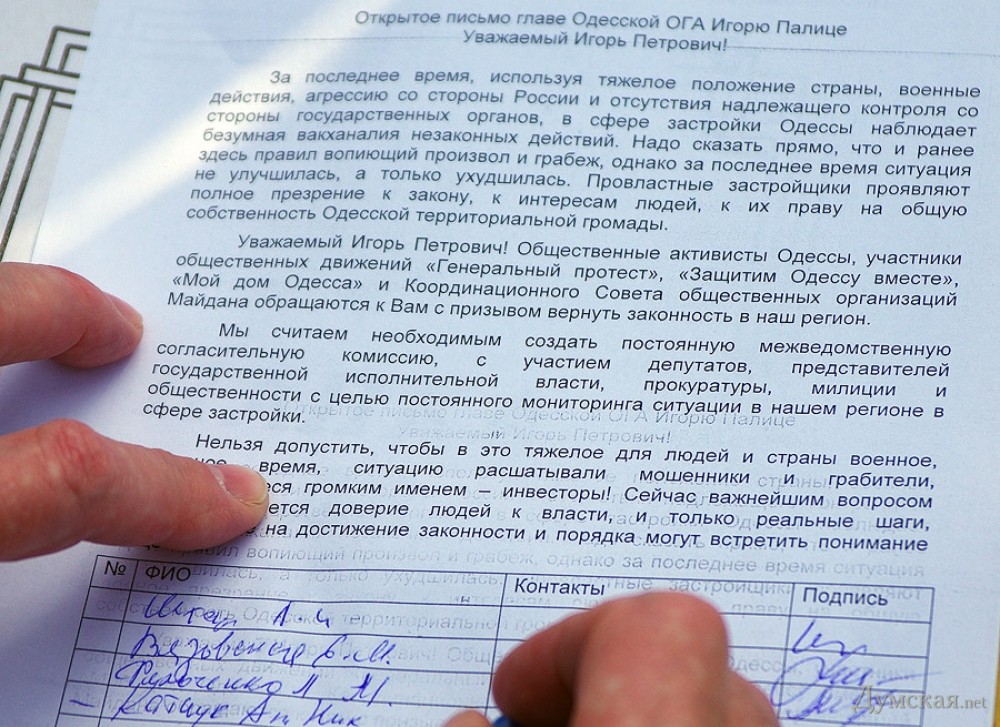 Открытое письмо главе Одесской ОГА Игорю Палице
Уважаемый Игорь Петрович!
За последнее время, используя тяжелое положение страны, военные
действия, агрессию со стороны России и отсутствия надлежащего контроля со
стороны государственных органов, в сфере застройки Одессы наблюдает
безумная вакханалия незаконных действий. Надо сказать прямо, что и ранее
здесь правил вопиющий произвол и грабеж, однако за последнее время ситуация
не улучшилась, а только ухудшилась. Провластные застройщики проявляют
полное презрение к закону, к интересам людей, к их праву на общую
собственность Одесской территориальной громады.
Уважаемый Игорь Петрович! Общественные активисты Одессы, участники
общественных движений «Генеральный протест», «Защитим Одессу вместе»,
«Мой дом Одесса» и Координационного Совета общественных организаций
Майдана обращаются к Вам с призывом вернуть законность в наш регион.
Мы считаем необходимым создать постоянную межведомственную
согласительную комиссию, с участием депутатов, представителей
государственной исполнительной власти, прокуратуры, милиции и
общественности с целью постоянного мониторинга ситуации в нашем регионе в
сфере застройки.
Нельзя допустить, чтобы в это тяжелое для людей и страны военное,
время, ситуацию расшатывали мошенники и грабители,
громким именем – инвесторы! Сейчас важнейшим вопросом
доверие людей к власти, и только реальные шаги,
на достижение законности и порядка могут встретить понимание
№ ФИО Контакты Подпись
Думская.net